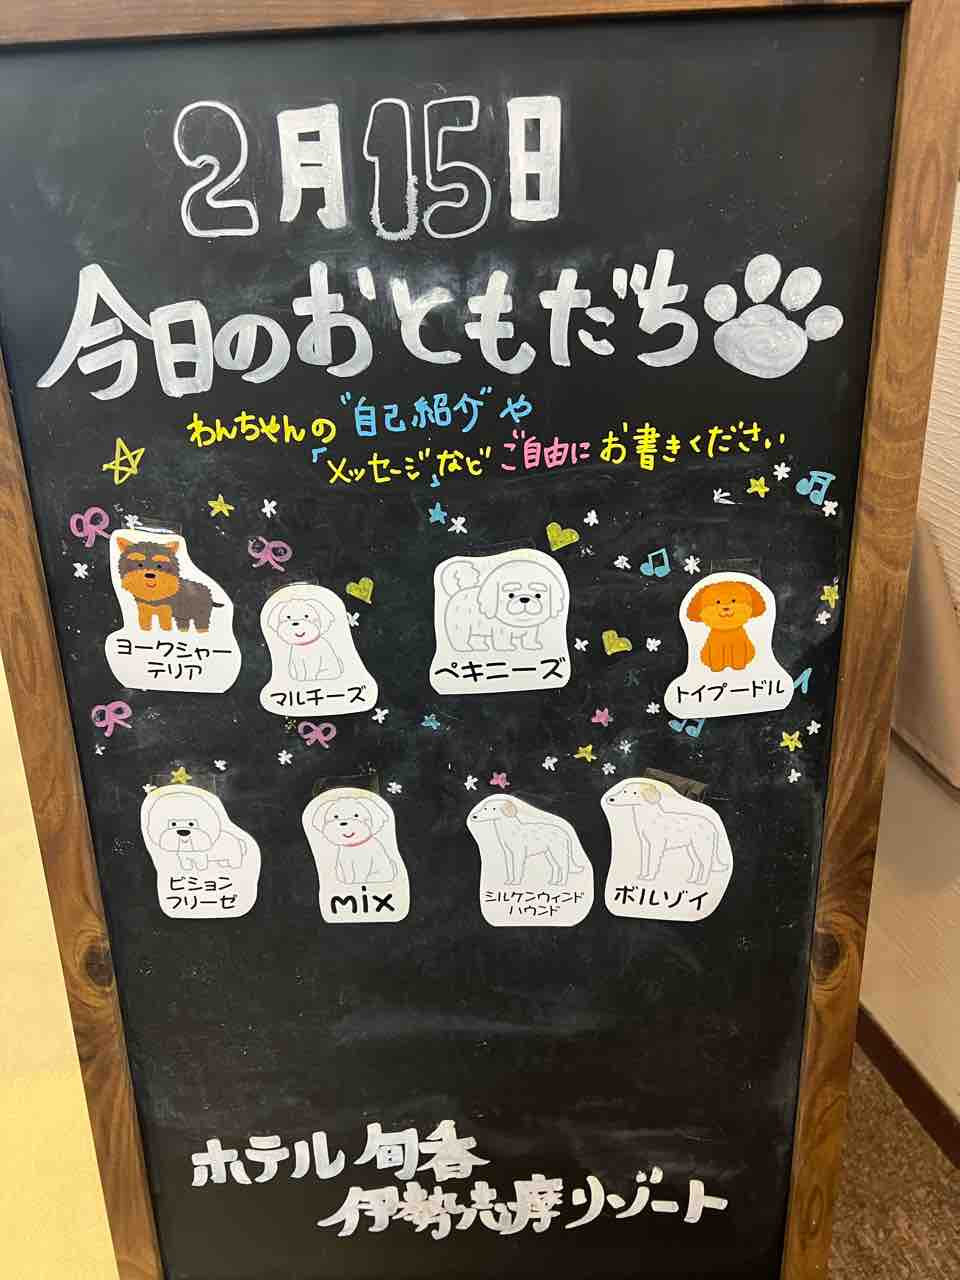 2月15日
今日のおともだち
わんちゃんの"自己紹介"や
「メッセージ」などご自由にお書きください
ヨークシャー
テリア
マルチーズ
ペキニーズ
トイプードル
ビション
フリーゼ
mix
シルケンウィンド
ハウンド
ボルゾイ
ホテル旬香
伊勢志摩リゾート